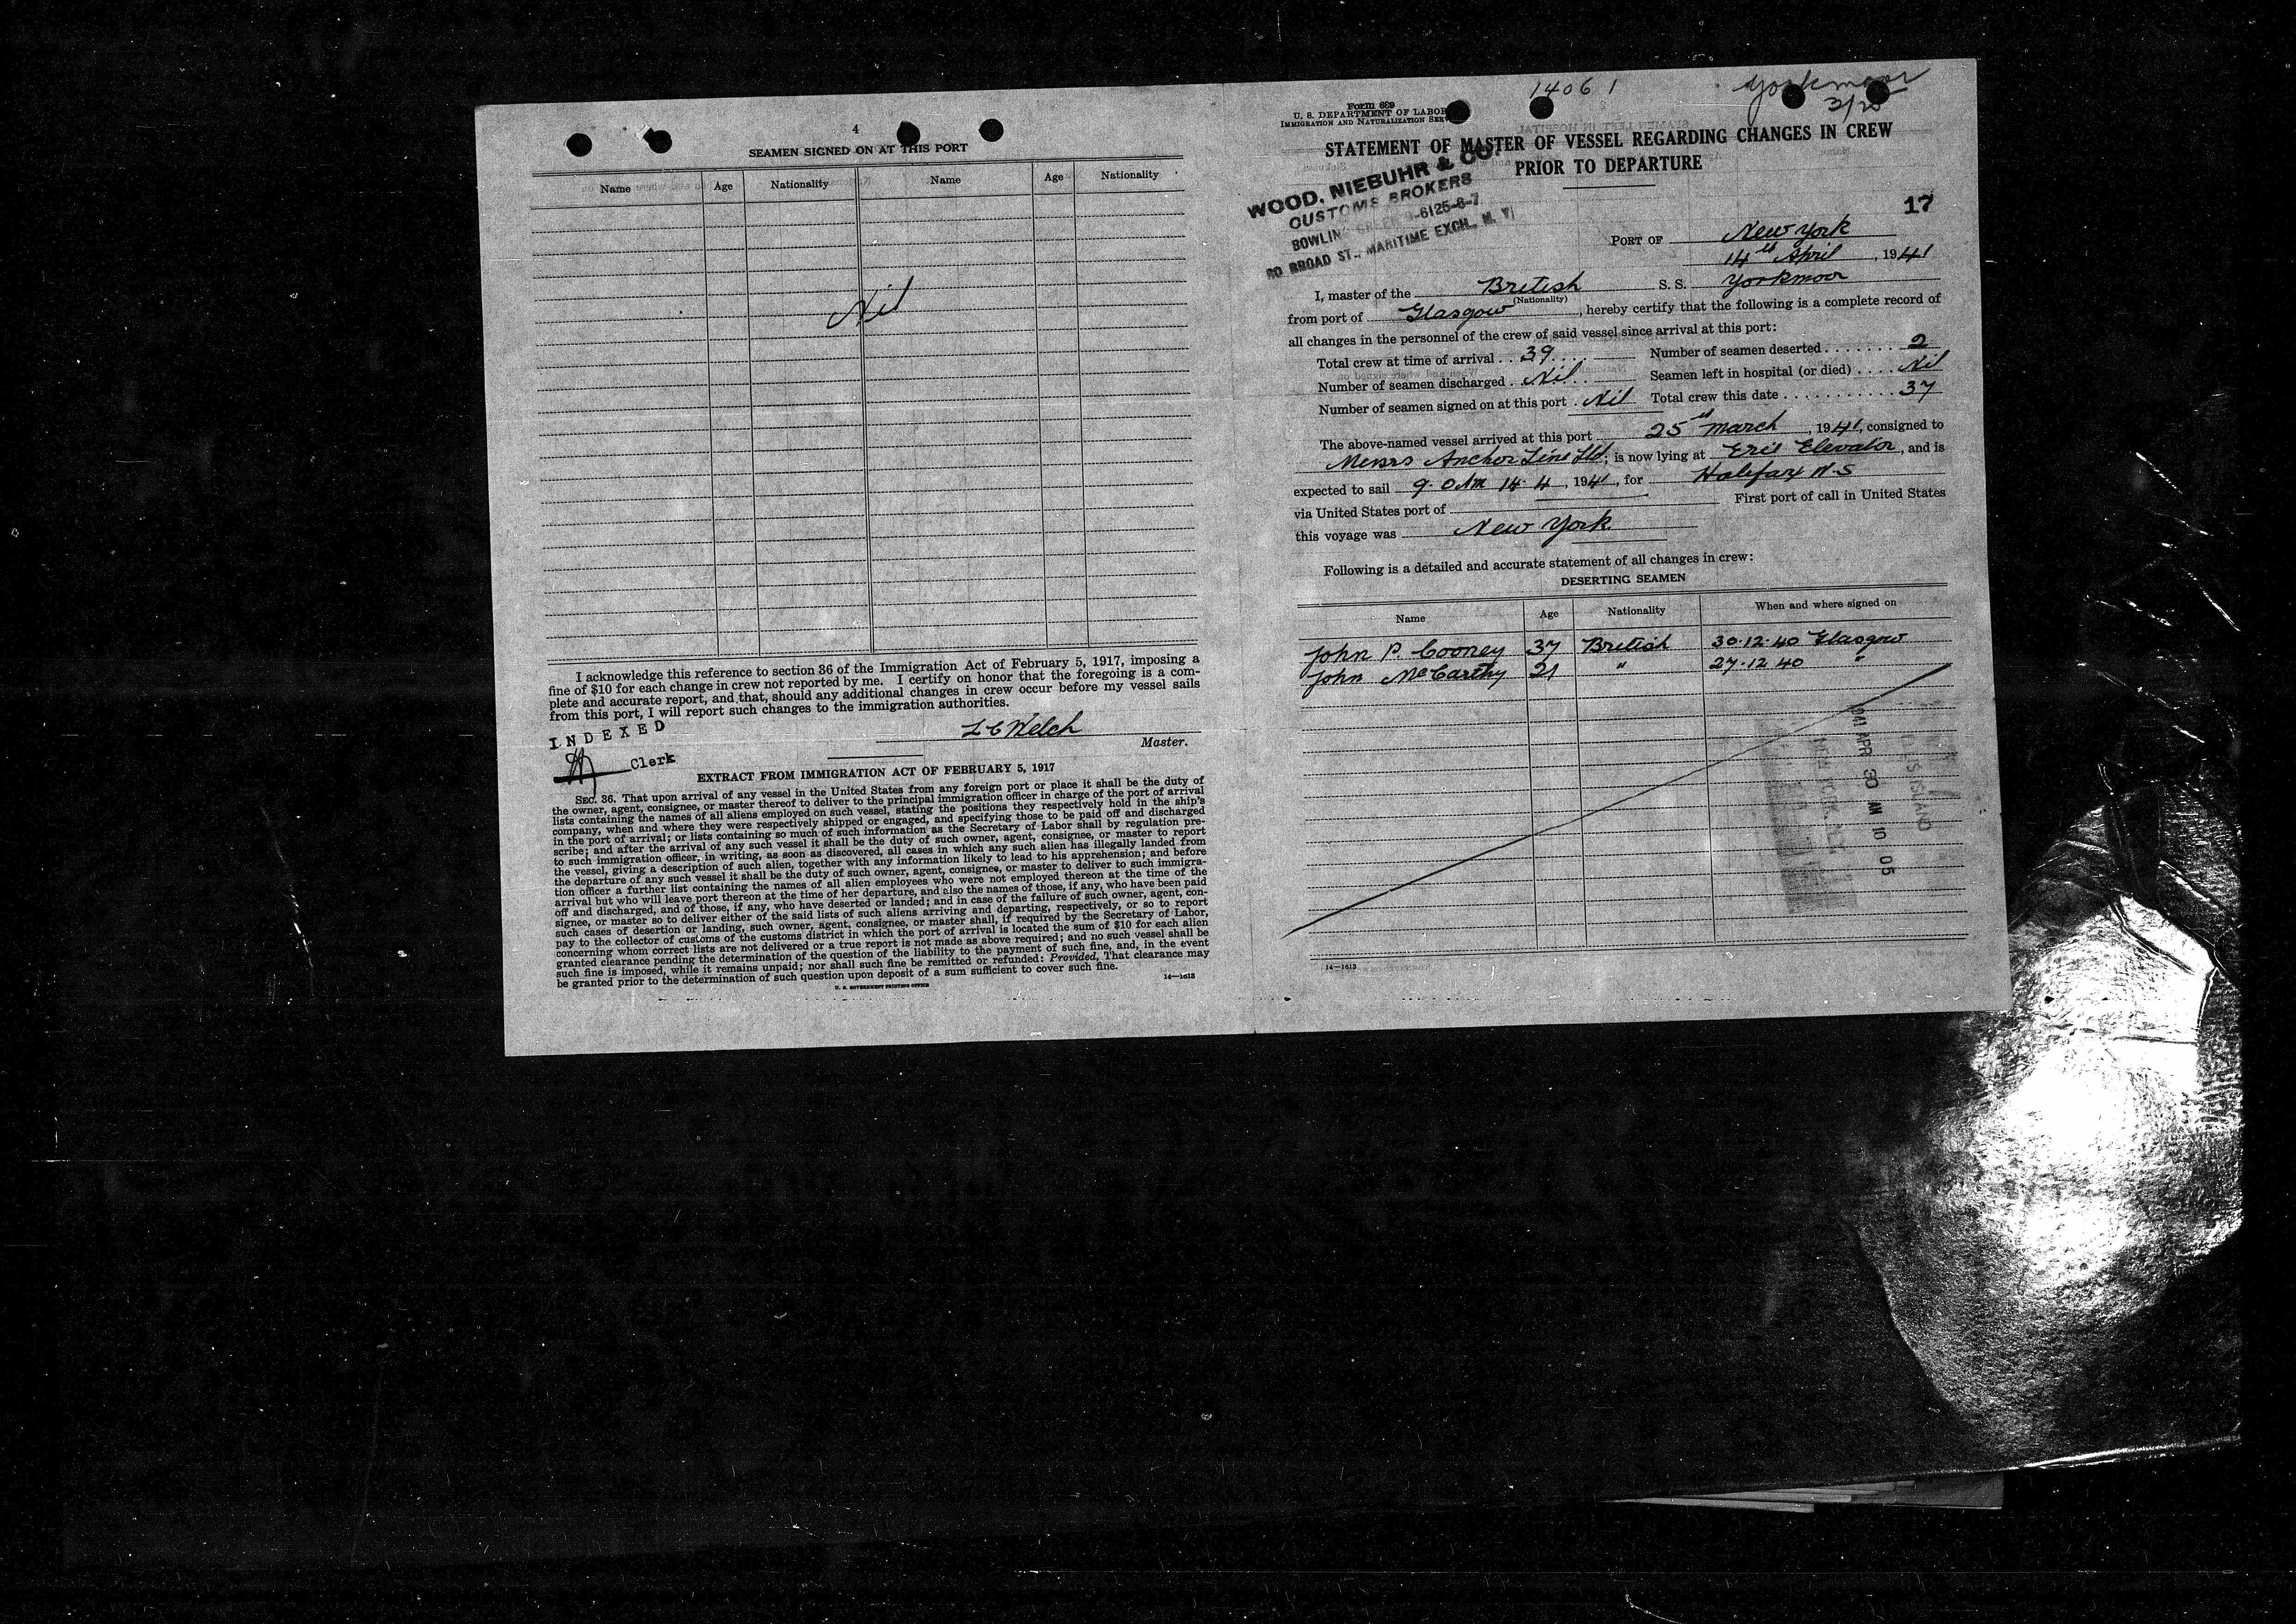 4
SEAMEN SIGNED ON AT THIS PORT
Name Age Nationality Name Age Nationality
Nil
I acknowledge this reference to section 36 of the Immigration Act of February 5, 1917, imposing a
fine of $10 for each change in crew not reported by me. I certify on honor that the foregoing is a com-
plete and accurate report, and that, should any additional changes in crew occur before my vessel sails
from this port, I will report such changes to the immigration authorities.
INDEXED
L C Welch
Master.
Clerk
EXTRACT FROM IMMIGRATION ACT OF FEBRUARY 5, 1917
SEC. 36. That upon arrival of any vessel in the United States from any foreign port or place it shall be the duty of
the owner, agent, consignee, or master thereof to deliver to the principal immigration officer in charge of the port of arrival
lists containing the names of all aliens employed on such vessel, stating the positions they respectively hold in the ship's
company, when and where they were respectively shipped or engaged, and specifying those to be paid off and discharged
in the port of arrival; or lists containing so much of such information as the Secretary of Labor shall by regulation pre-
scribe; and after the arrival of any such vessel it shall be the duty of such owner, agent, consignee, or master to report
to such immigration officer, in writing, as soon as discovered, all cases in which any such alien has illegally landed from
the vessel, giving a description of such alien, together with any information likely to lead to his apprehension; and before
the departure of any such vessel it shall be the duty of such owner, agent, consignee, or master to deliver to such immigra-
tion officer a further list containing the names of all alien employees who were not employed thereon at the time of the
arrival but who will leave port thereon at the time of her departure, and also the names of those, if any, who have been paid
off and discharged, and of those, if any, who have deserted or landed; and in case of the failure of such owner, agent, con-
signee, or master so to deliver either of the said lists of such aliens arriving and departing, respectively, or so to report
such cases of desertion or landing, such owner, agent, consignee, or master shall, if required by the Secretary of Labor,
pay to the collector of customs of the customs district in which the port of arrival is located the sum of $10 for each alien
concerning whom correct lists are not delivered or a true report is not made as above required; and no such vessel shall be
granted clearance pending the determination of the question of the liability to the payment of such fine, and, in the event
such fine is imposed, while it remains unpaid; nor shall such fine be remitted or refunded: Provided, That clearance may
be granted prior to the determination of such question upon deposit of a sum sufficient to cover such fine.
U. S. GOVERNMENT PRINTING OFFICE
14—1613
14061
Yorkmoor
3/25
Form 689
U. S. DEPARTMENT OF LABOR
IMMIGRATION AND NATURALIZATION SERV
STATEMENT OF MASTER OF VESSEL REGARDING CHANGES IN CREW
PRIOR TO DEPARTURE
WOOD, NIEBUHR & CO.
CUSTOMS BROKERS
BOWLING GREEN 9-6125-6-7
80 BROAD ST., MARITIME EXCH., N. Y.
17
PORT OF New York
14th April, 1941
I, master of the British S. S. Yorkmoor
(Nationality)
from port of Glasgow, hereby certify that the following is a complete record of
all changes in the personnel of the crew of said vessel since arrival at this port:
Total crew at time of arrival . . 39 . . . Number of seamen deserted . . . . . . . 2
Number of seamen discharged . Nil . . Seamen left in hospital (or died) . . . . Nil
Number of seamen signed on at this port . Nil Total crew this date . . . . . . . . . . . 37
The above-named vessel arrived at this port 25th March, 1941, consigned to
Messrs Anchor Line Ltd; is now lying at Erie Elevator, and is
expected to sail 9.0 AM 14.4, 1941, for Halifax N.S
via United States port of First port of call in United States
this voyage was New York.
Following is a detailed and accurate statement of all changes in crew:
DESERTING SEAMEN
Name Age Nationality When and where signed on
John P. Cooney 37 British 30.12.40 Glasgow
John McCarthy 21 " 27.12 40 "
1941 APR 30 AM 10 05
14—1613